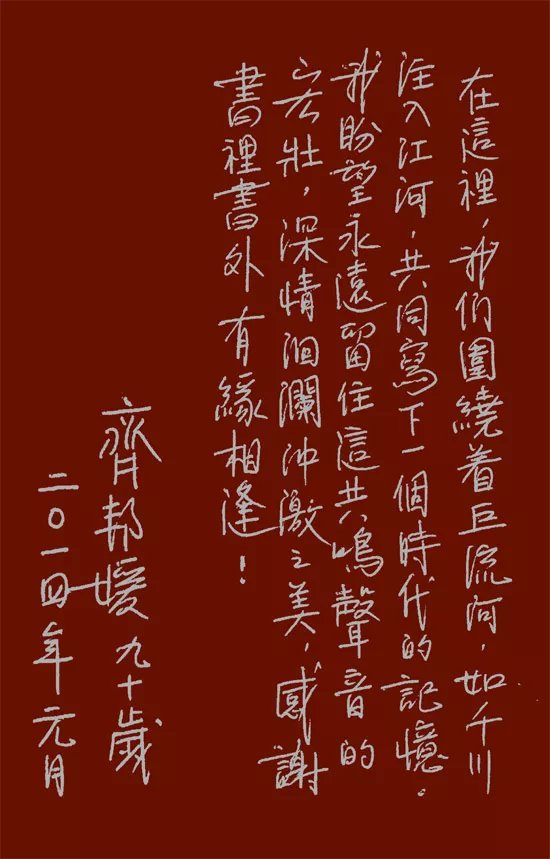 在這裡，我們圍繞着巨流河，如千川
注入江河，共同寫下一個時代的記憶。
我盼望永遠留住這共鳴聲音的
宏壯，深情洄瀾沖激之美，感謝
書裡書外有緣相逢！
齊邦媛九十歲
二〇一四年元月